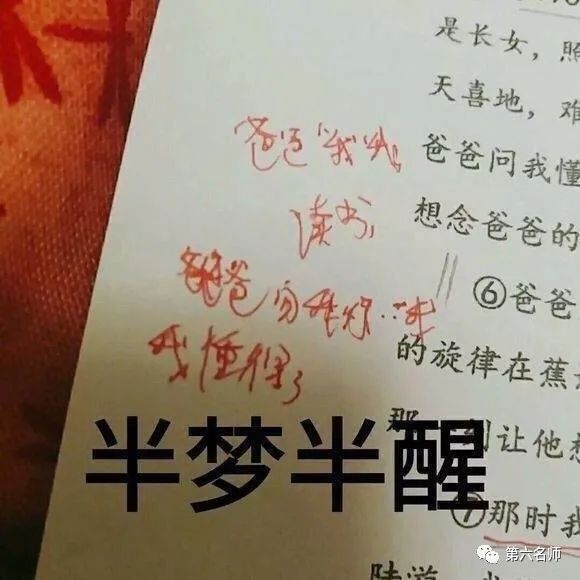 是长女，照
天喜地，难
爸爸问我懂
想念爸爸的
⑥爸爸
的旋律在蕉
那一刻让他想
⑦那时我
爸爸
读书，
爸爸
我懂得了
半梦半醒
第六名师